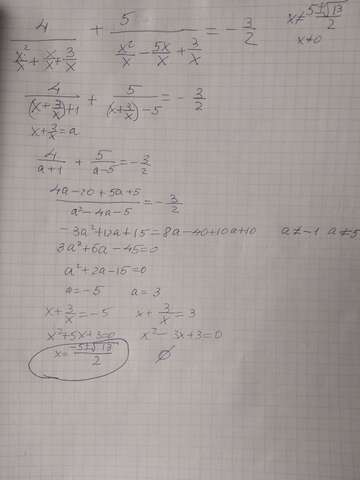 4/(x²/x + x/x + 3/x) + 5/(x²/x - 5x/x + 3/x) = -3/2   x ≠ (5±√13)/2
x≠0
4/((x+3/x)+1) + 5/((x+3/x)-5) = -3/2
x+3/x=a
4/(a+1) + 5/(a-5) = -3/2
(4a-20+5a+5)/(a²-4a-5) = -3/2
-3a²+12a+15=8a-40+10a+10   a≠-1   a≠5
3a²+6a-45=0
a²+2a-15=0
a=-5   a=3
x+3/x=-5   x+3/x=3
x²+5x+3=0   x²-3x+3=0
x=(-5±√13)/2   ∅